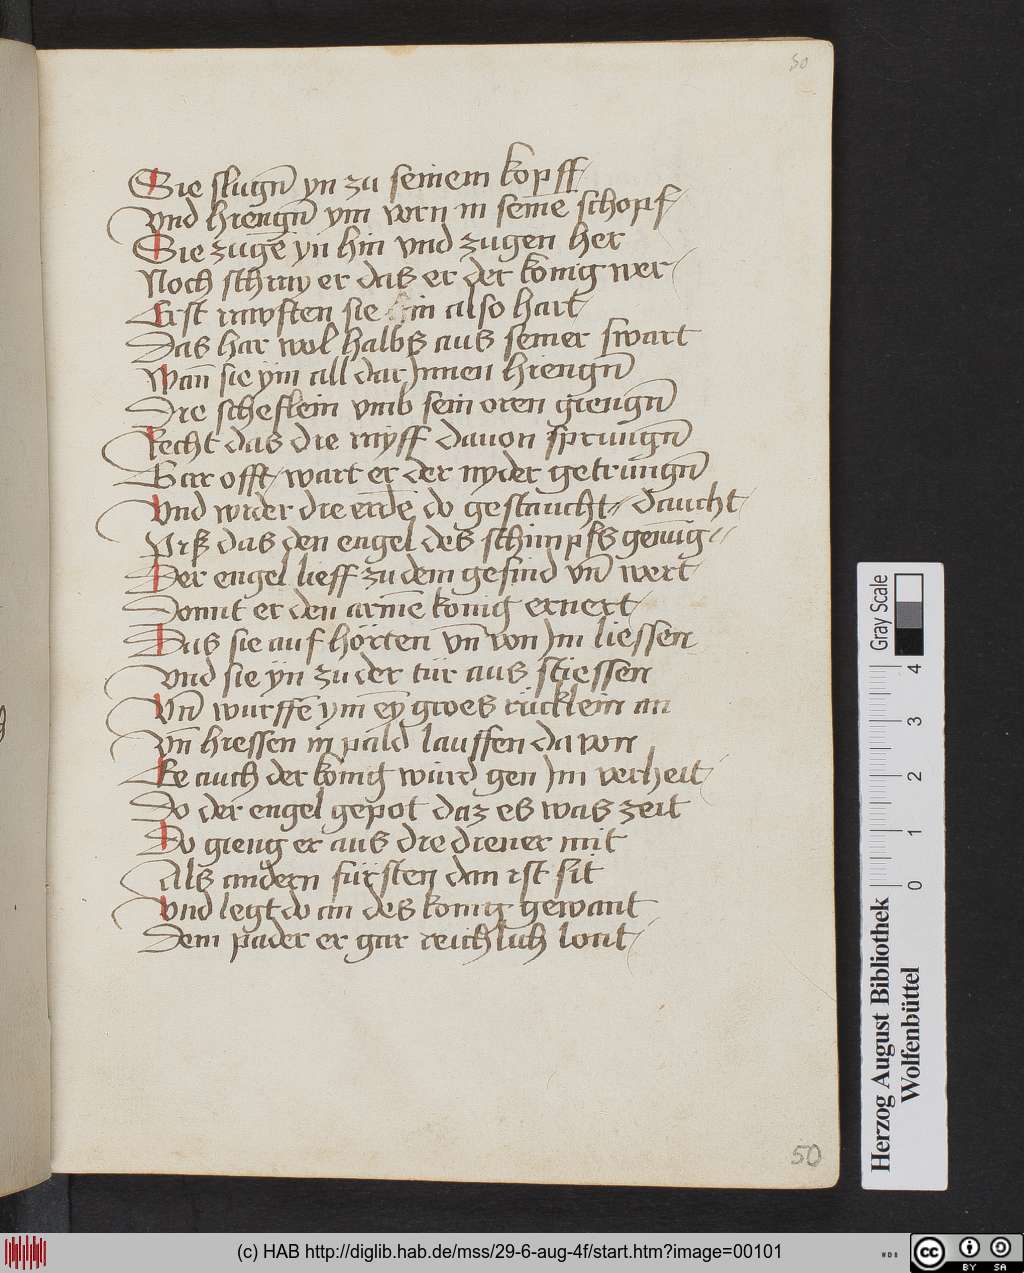 50
Sie slugn̄ yn zu seinem kopff
vnd hiengn̄ ym vorn in seinē schopf
Sie zugē yn hin vnd zugen her
Noch schray er das er der konig wer
Erst rawften sie hin also hart
Das har wol halbs aus seiner swart
Wan̄ sie ym all dar Jnnen hiengn̄
Die scheflein vmb sein oren giengn̄
Recht das die rayff dauon sprungn̄
Gar offt wart er der nyder getrungn̄
Vnd wider die erdē do gestaucht daucht
Piß das den engel des schimpfs genug
Der engel lieff zu dem gesind vn̄ wert
Domit er den armē konig ernert
Das sie auf hörten vn̄ von Jm liessen
Vnd sie yn zu der tür aus stiessen
Vn̄ wurffē ym eȳ groes rücklein an
Vn̄ hiessen in pald lauffen da von
Ee auch der konig würd gen Jm verheit
Do der engel gepot daz es was zeit
Do gieng er aus die diener mit
Als andern fürsten dan ist sit
vnd legt do an des konig gewant
Dem pader er gar reichlich lont
50
Herzog August Bibliothek
Wolfenbüttel
Gray Scale
0 1 2 3 4
(c) HAB http://diglib.hab.de/mss/29-6-aug-4f/start.htm?image=00101
cc BY SA